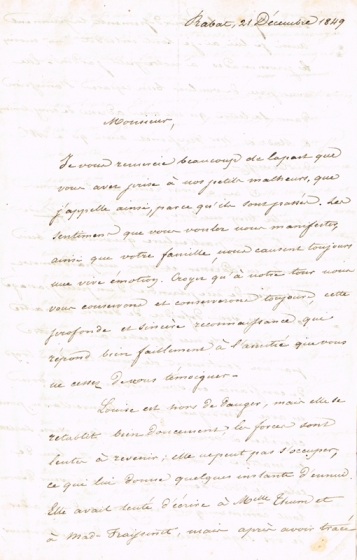 Rabat, 21 Décembre 1849
Monsieur,
Je vous remercie beaucoup de la part que
vous avez prise à nos petits malheurs, que
j'appelle ainsi, parce qu'ils sont passés. Les
sentiments que vous voulez nous manifester,
ainsi que votre famille, nous causent toujours
une vive émotion. Croyez qu'à notre tour nous
vous conservons et conserverons toujours, cette
profonde et sincère reconnaissance, que
répond bien faiblement à l'amitié que vous
ne cessez de nous témoigner.
Louise est hors de danger, mais elle se
rétablit bien doucement; les forces sont
lentes à revenir; elle ne peut pas s'occuper,
ce qui lui donne quelques instants d'ennui.
Elle avait tenté d'écrire à Melle et
à Made, mais après avoir tracé